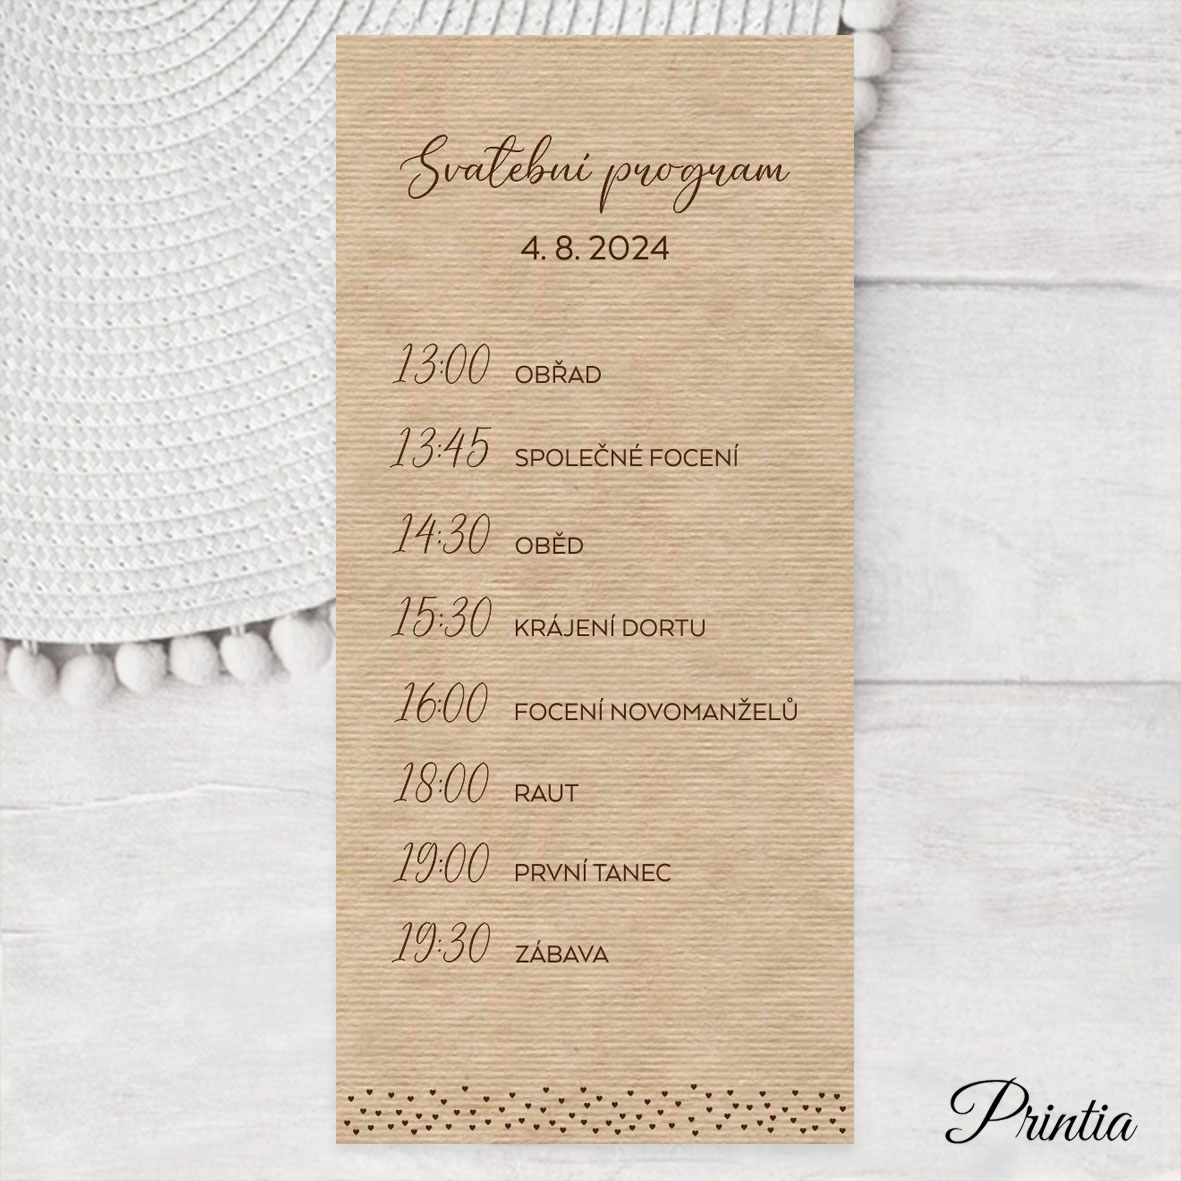 Svatební program
4. 8. 2024
13:00 OBŘAD
13:45 SPOLEČNÉ FOCENÍ
14:30 OBĚD
15:30 KRÁJENÍ DORTU
16:00 FOCENÍ NOVOMANŽELŮ
18:00 RAUT
19:00 PRVNÍ TANEC
19:30 ZÁBAVA
Printia